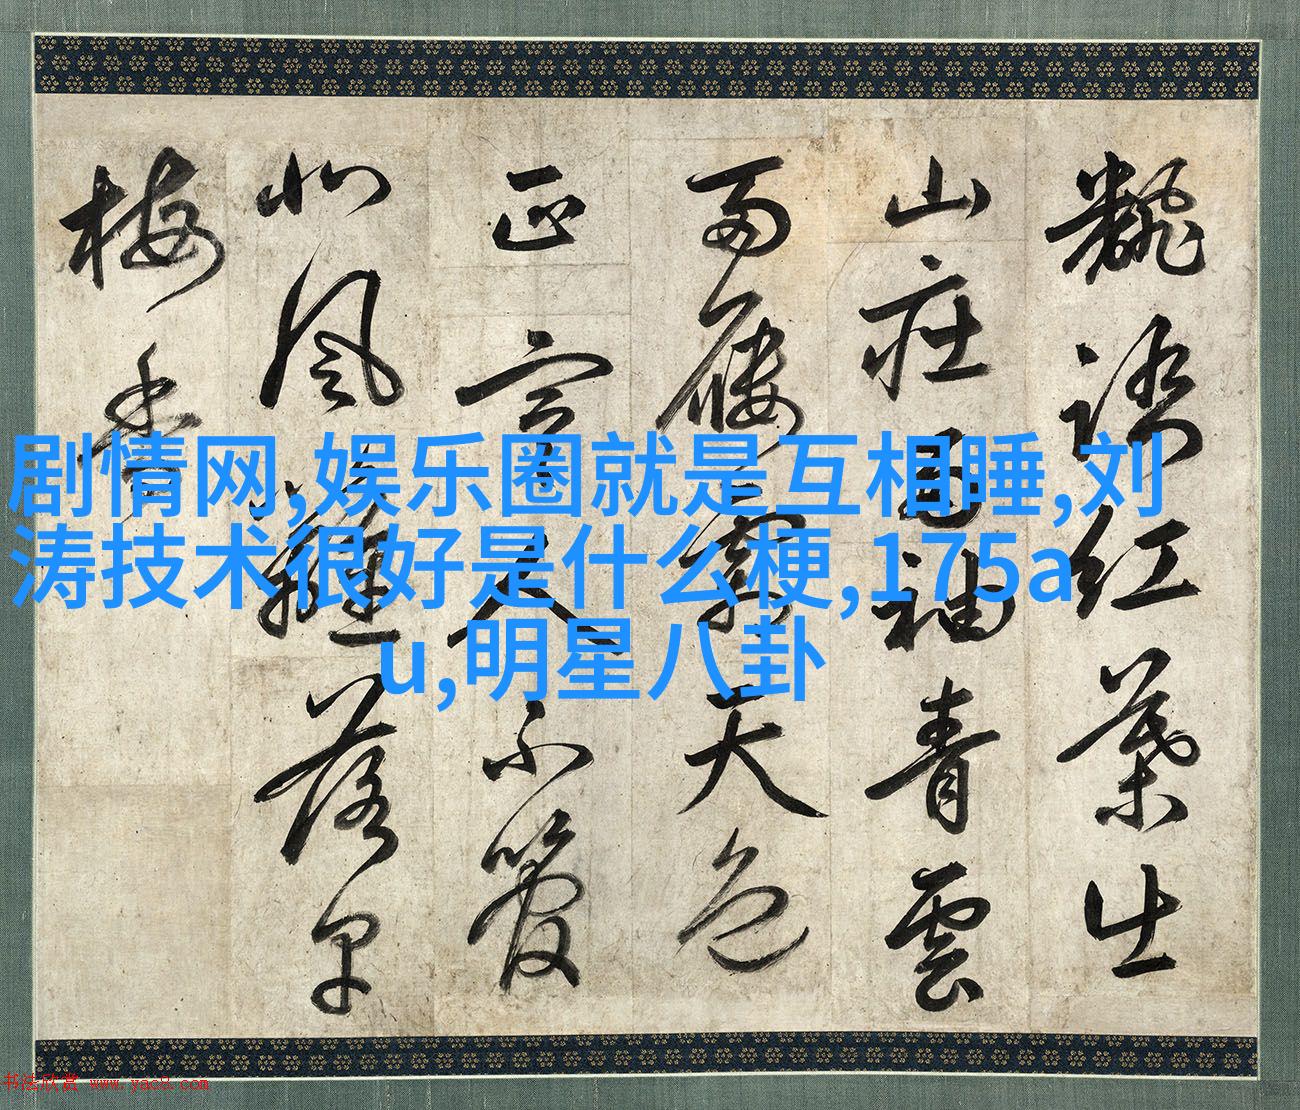 剧情网,娱乐圈就是互相睡,刘
涛技术很好是什么梗,175a
u,明星八卦
紅葉出
山庄袖青雲
雨天色
正言人不管
風落
梅香
书法欣赏 www.yac8.com